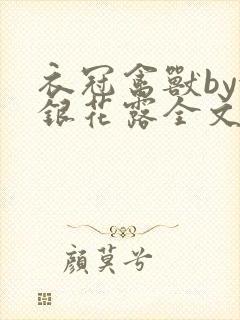 衣冠禽獸by
銀花露全文
顏莫兮